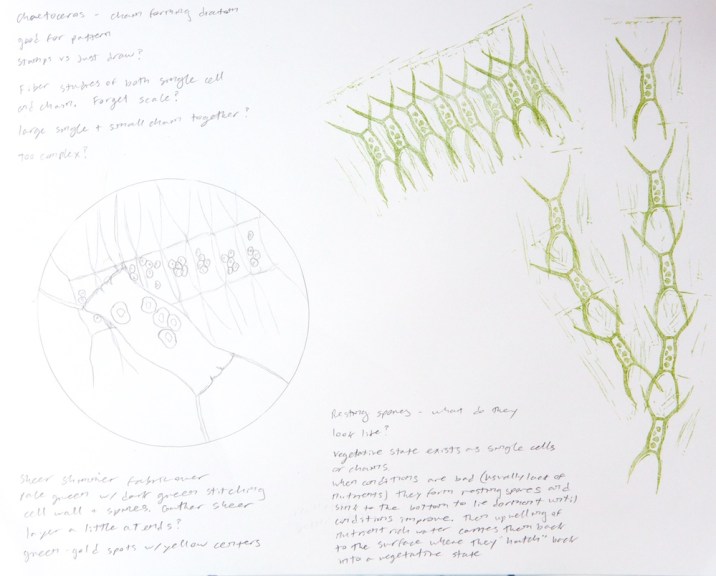 Chaetoceros - chain forming diatom
good for pattern
stamps vs just draw?
Fiber studies of both single cell
and chain. Forget scale?
large single + small chain together?
too complex?
Sheer shimmer fabric over
pale green w/ dark green stitching
cell wall + spines. Another sheer
layer a little at ends?
green-gold spots w/ yellow centers
Resting spores - what do they
look like?
Vegetative state exists as single cells
or chains.
When conditions are bad (usually lack of
nutrients) they form resting spores and
sink to the bottom to lie dormant until
conditions improve. Then upwelling of
nutrient rich water carries them back
to the surface where they "hatch" back
into a vegetative state